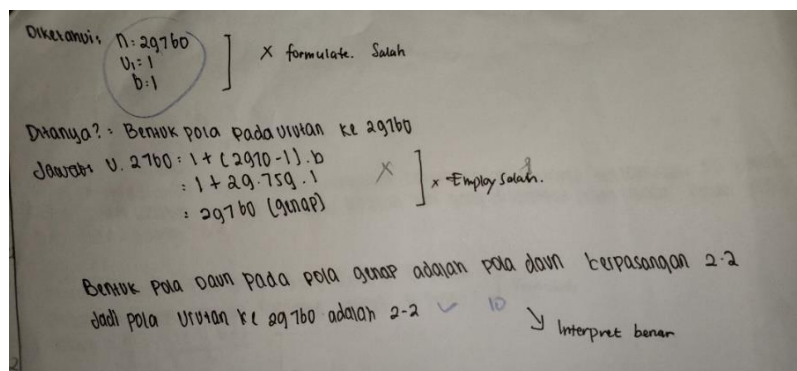 Diketahui: n: 29760
U1 = 1
b: 1
x formulate. Salah
Ditanya? : Bentuk pola pada urutan ke 29760
Jawab: U. 2760: 1 + (2970-1).b
: 1 + 29.759.1
: 29760 (genap)
x
x Employ salah.
Bentuk pola Daun pada pola genap adalah pola daun berpasangan 2-2
Jadi pola urutan ke 29760 adalah 2-2 ✓ 10
Interpret benar